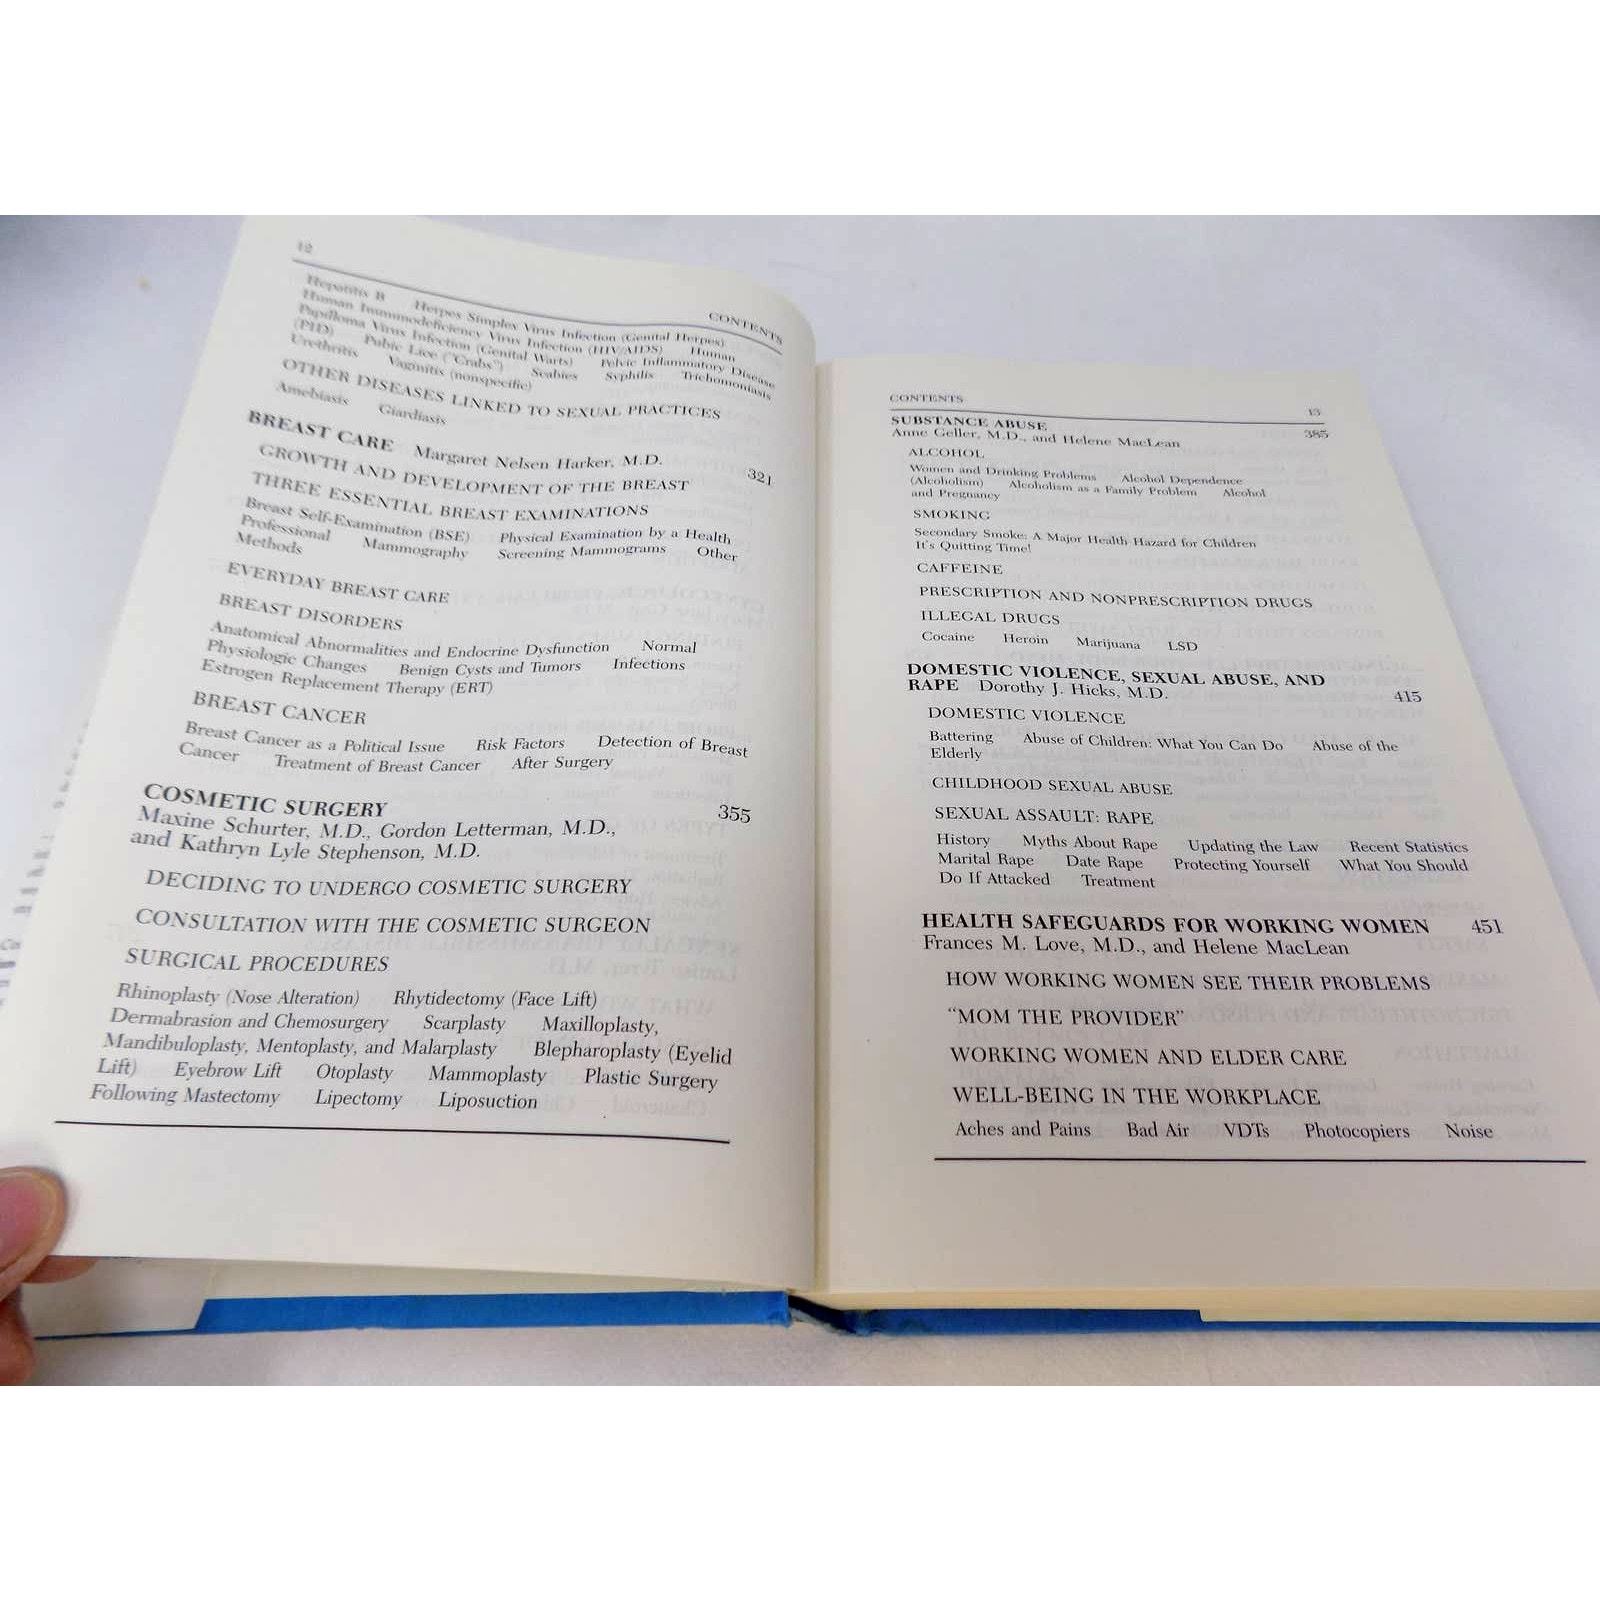 12
CONTENTS
Hepatitis B Herpes Simplex Virus Infection (Genital Herpes)
Human Immunodeficiency Virus Infection (HIV/AIDS) Human
Papilloma Virus Infection (Genital Warts) Pelvic Inflammatory Disease
(PID) Pubic Lice ("Crabs") Scabies Syphilis Trichomoniasis
Urethritis Vaginitis (nonspecific)
OTHER DISEASES LINKED TO SEXUAL PRACTICES
Amebiasis Giardiasis
BREAST CARE Margaret Nelsen Harker, M.D. 321
GROWTH AND DEVELOPMENT OF THE BREAST
THREE ESSENTIAL BREAST EXAMINATIONS
Breast Self-Examination (BSE) Physical Examination by a Health
Professional Mammography Screening Mammograms Other
Methods
EVERYDAY BREAST CARE
BREAST DISORDERS
Anatomical Abnormalities and Endocrine Dysfunction Normal
Physiologic Changes Benign Cysts and Tumors Infections
Estrogen Replacement Therapy (ERT)
BREAST CANCER
Breast Cancer as a Political Issue Risk Factors Detection of Breast
Cancer Treatment of Breast Cancer After Surgery
COSMETIC SURGERY 355
Maxine Schurter, M.D., Gordon Letterman, M.D.,
and Kathryn Lyle Stephenson, M.D.
DECIDING TO UNDERGO COSMETIC SURGERY
CONSULTATION WITH THE COSMETIC SURGEON
SURGICAL PROCEDURES
Rhinoplasty (Nose Alteration) Rhytidectomy (Face Lift)
Dermabrasion and Chemosurgery Scarplasty Maxilloplasty,
Mandibuloplasty, Mentoplasty, and Malarplasty Blepharoplasty (Eyelid
Lift) Eyebrow Lift Otoplasty Mammoplasty Plastic Surgery
Following Mastectomy Lipectomy Liposuction
CONTENTS 13
SUBSTANCE ABUSE 385
Anne Geller, M.D., and Helene MacLean
ALCOHOL
Women and Drinking Problems Alcohol Dependence
(Alcoholism) Alcoholism as a Family Problem Alcohol
and Pregnancy
SMOKING
Secondary Smoke: A Major Health Hazard for Children
It's Quitting Time!
CAFFEINE
PRESCRIPTION AND NONPRESCRIPTION DRUGS
ILLEGAL DRUGS
Cocaine Heroin Marijuana LSD
DOMESTIC VIOLENCE, SEXUAL ABUSE, AND
RAPE Dorothy J. Hicks, M.D. 415
DOMESTIC VIOLENCE
Battering Abuse of Children: What You Can Do Abuse of the
Elderly
CHILDHOOD SEXUAL ABUSE
SEXUAL ASSAULT: RAPE
History Myths About Rape Updating the Law Recent Statistics
Marital Rape Date Rape Protecting Yourself What You Should
Do If Attacked Treatment
HEALTH SAFEGUARDS FOR WORKING WOMEN 451
Frances M. Love, M.D., and Helene MacLean
HOW WORKING WOMEN SEE THEIR PROBLEMS
"MOM THE PROVIDER"
WORKING WOMEN AND ELDER CARE
WELL-BEING IN THE WORKPLACE
Aches and Pains Bad Air VDTs Photocopiers Noise